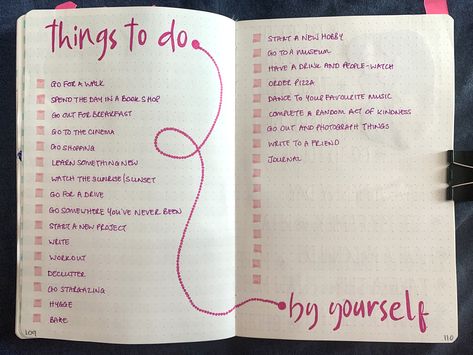 things to do
GO FOR A WALK
SPEND THE DAY IN A BOOK SHOP
GO OUT FOR BREAKFAST
GO TO THE CINEMA
GO SHOPPING
LEARN SOMETHING NEW
WATCH THE SUNRISE/SUNSET
GO FOR A DRIVE
GO SOMEWHERE YOU'VE NEVER BEEN
START A NEW PROJECT
WRITE
WORKOUT
DECLUTTER
GO STARGAZING
HYGGE
BAKE
109
START A NEW HOBBY
GO TO A MUSEUM
HAVE A DRINK AND PEOPLE-WATCH
ORDER PIZZA
DANCE TO YOUR FAVOURITE MUSIC
COMPLETE A RANDOM ACT OF KINDNESS
GO OUT AND PHOTOGRAPH THINGS
WRITE TO A FRIEND
JOURNAL
by yourself
110